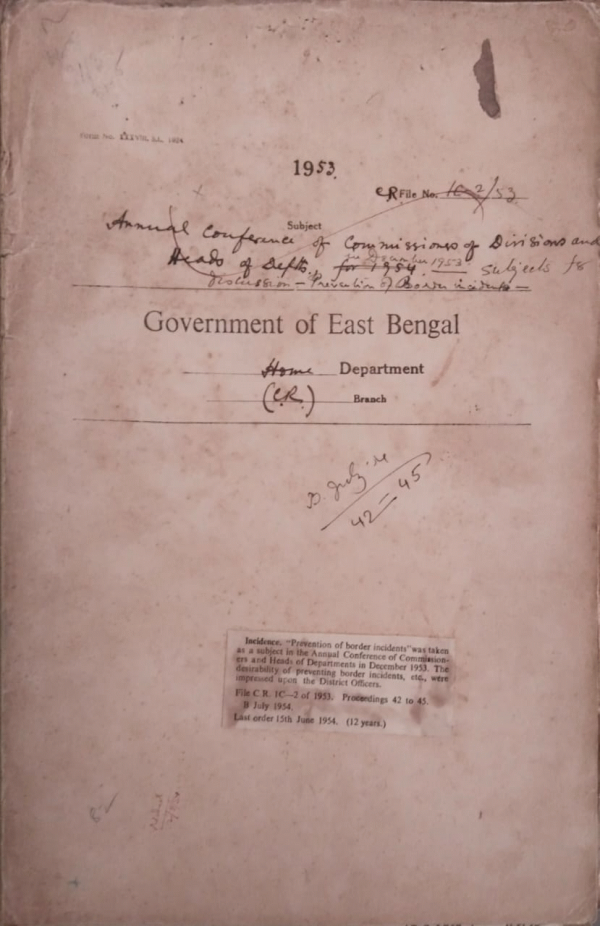 Form No. XXXVIII.
1953.
CR File No. 1C-2/53
Subject
Annual Conference of Commissioners of Divisions and
Heads of Depts. for 1954. in December 1953. Subjects for
discussion — Prevention of Border incidents —
Government of East Bengal
Home Department
(C.R.) Branch
B. July
42 — 45
Incidence. "Prevention of border incidents" was taken
as a subject in the Annual Conference of Commission-
ers and Heads of Departments in December 1953. The
desirability of preventing border incidents, etc., were
impressed upon the District Officers.
File C.R. 1C—2 of 1953. Proceedings 42 to 45.
B July 1954.
Last order 15th June 1954. (12 years.)